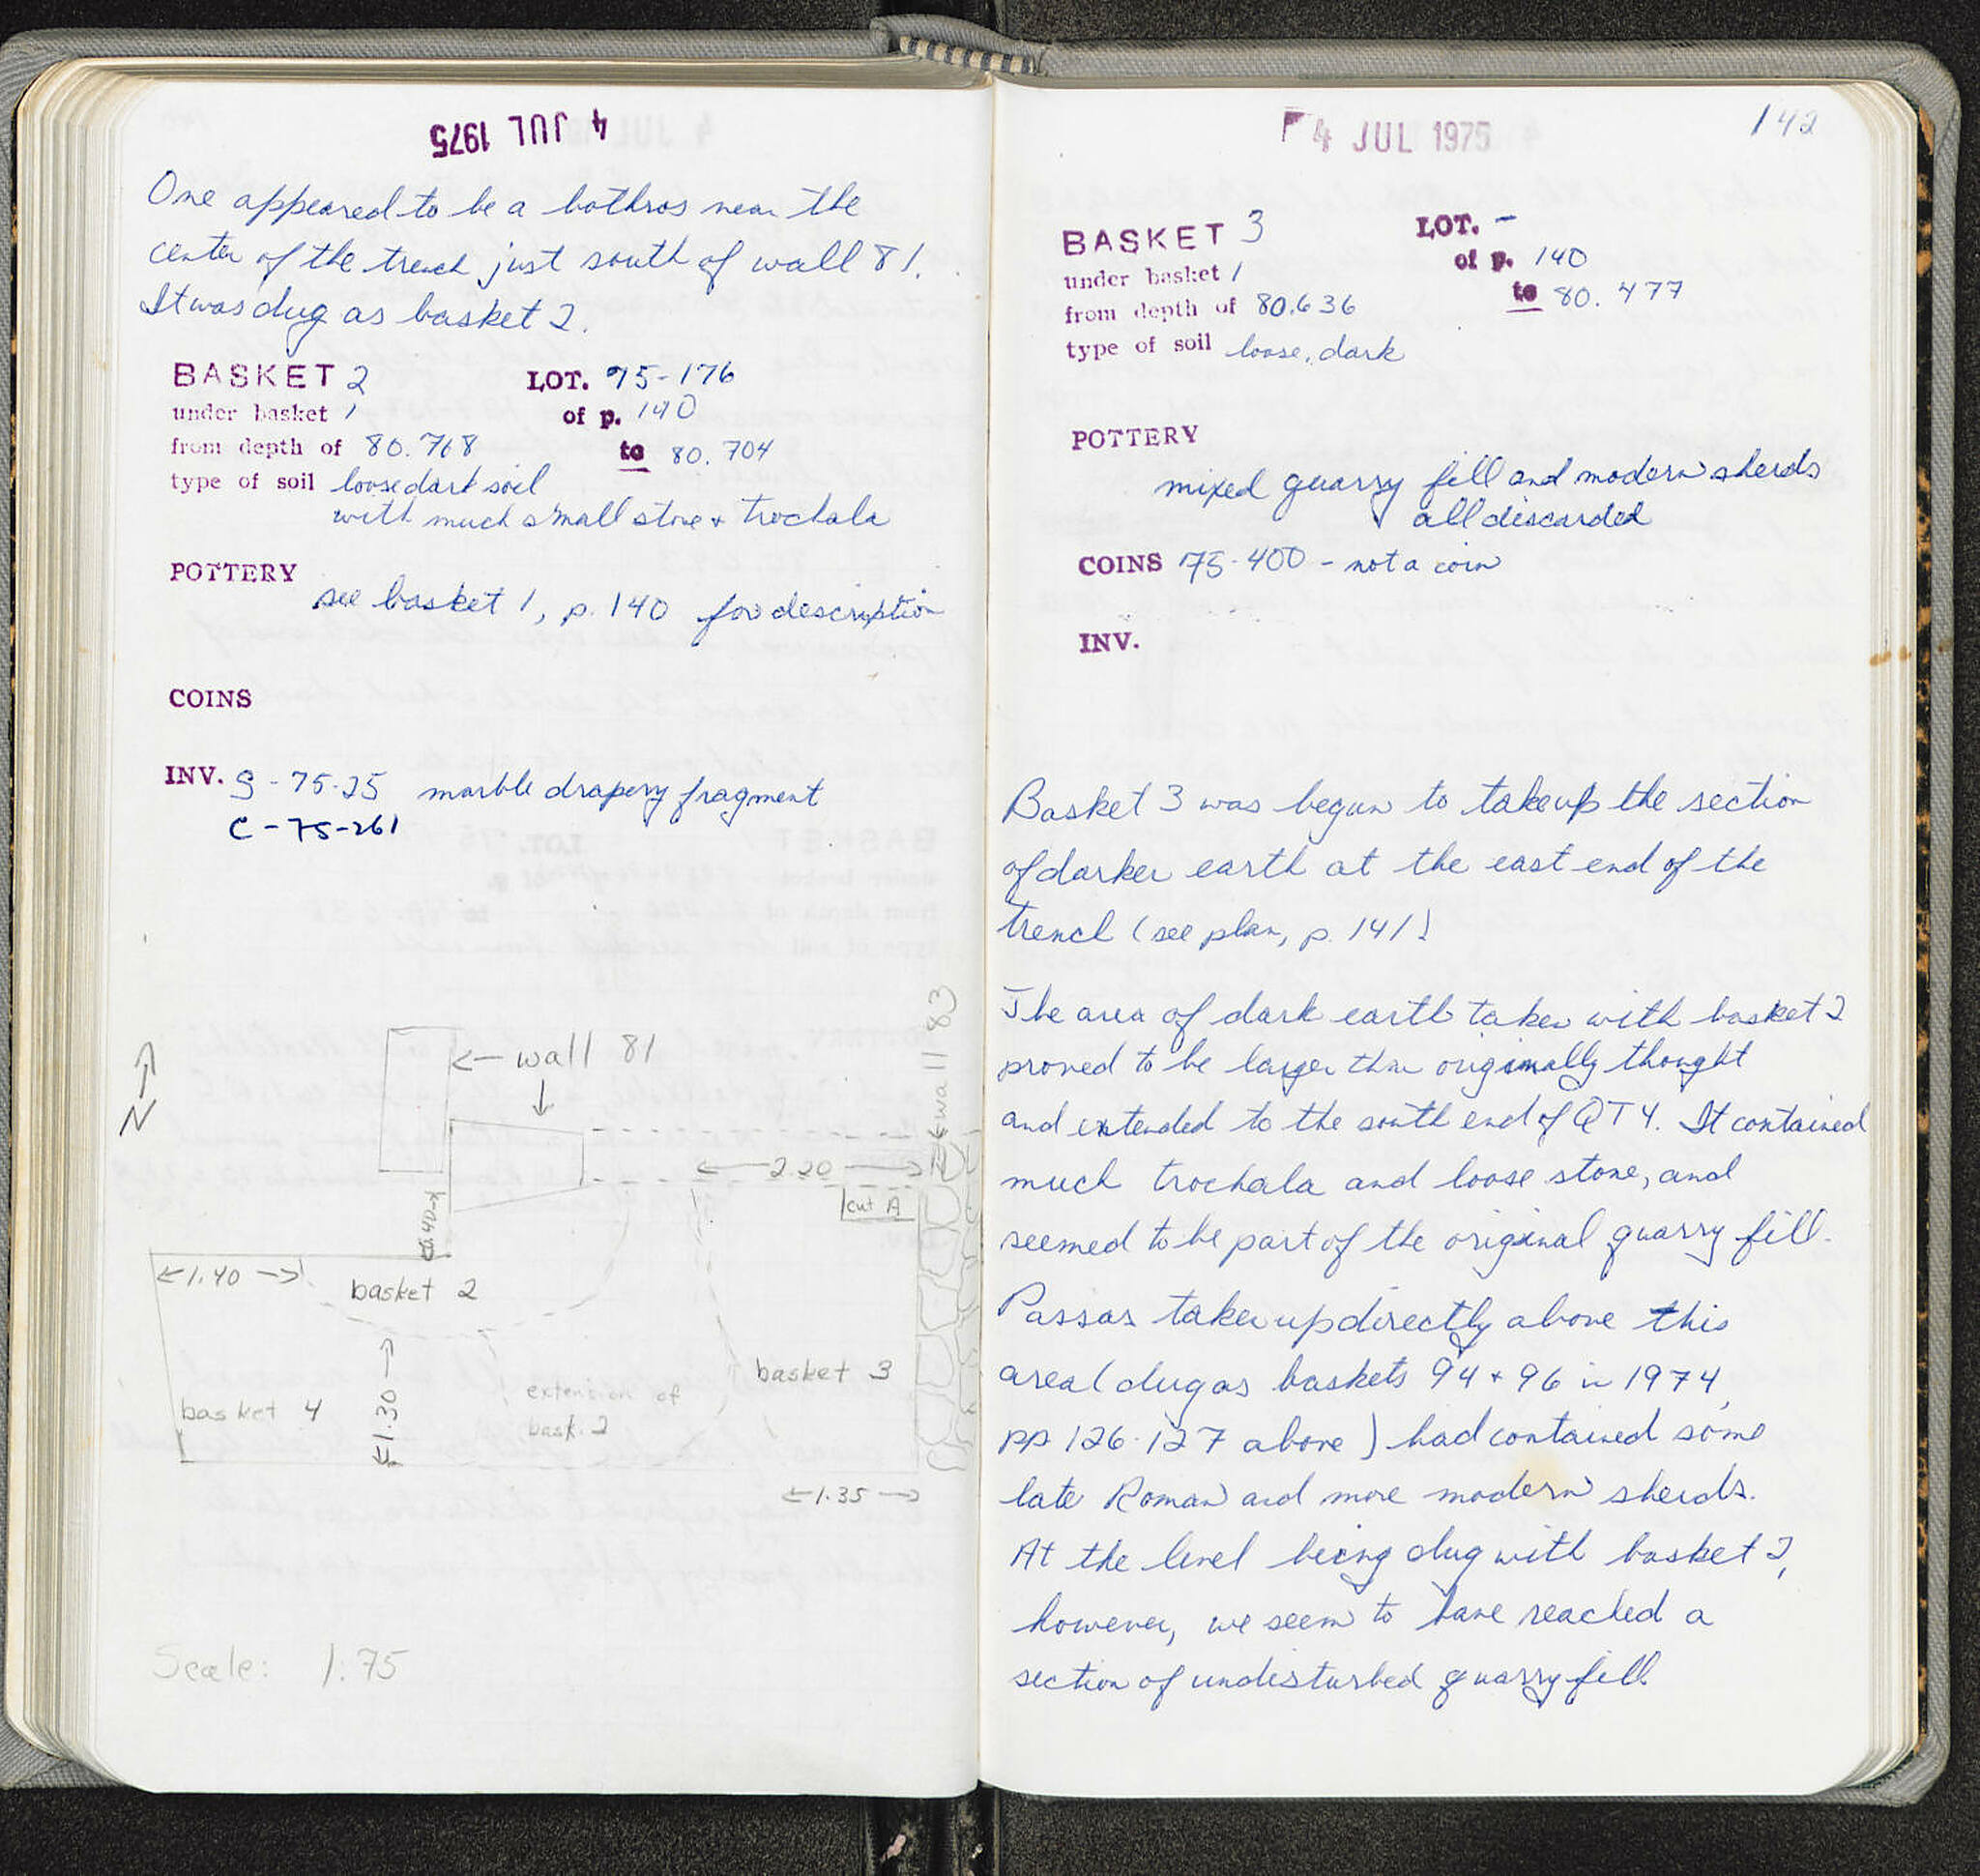 4 JUL 1975
One appeared to be a bothros near the
center of the trench just south of wall 81.
It was dug as basket 2.
BASKET 2 LOT. 75-176
under basket 1 of p. 140
from depth of 80.768 to 80.704
type of soil loose dark soil
with much small stone + trochala
POTTERY
see basket 1, p. 140 for description
COINS
INV. S-75-25 marble drapery fragment
C-75-261
N
← wall 81
← wall 83
←2.20→
cut A
.40
←1.40→
basket 2
basket 3
basket 4
←1.30→
extension of
bask. 2
←1.35→
Scale: 1:75
4 JUL 1975
142
BASKET 3 LOT. -
under basket 1 of p. 140
from depth of 80.636 to 80.477
type of soil loose, dark
POTTERY
mixed quarry fill and modern sherds
all discarded
COINS 75-400 - not a coin
INV.
Basket 3 was begun to take up the section
of darker earth at the east end of the
trench (see plan, p. 141)
The area of dark earth taken with basket 2
proved to be larger than originally thought
and extended to the south end of QT4. It contained
much trochala and loose stone, and
seemed to be part of the original quarry fill.
Passas taken up directly above this
area (dug as baskets 94 + 96 in 1974,
pp 126-127 above) had contained some
late Roman and more modern sherds.
At the level being dug with basket 2,
however, we seem to have reached a
section of undisturbed quarry fill.